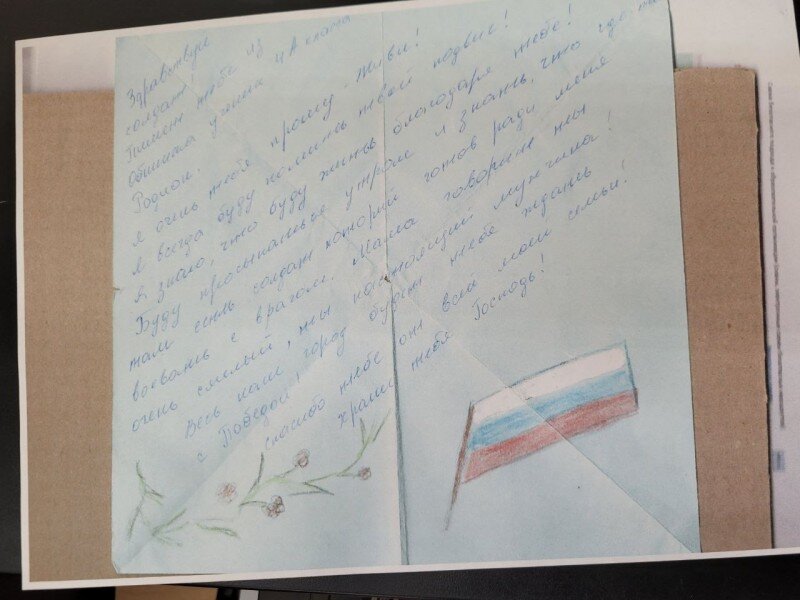 Здравствуй
солдат!
Пишет тебе из
Обнинска ученик 4 А класса
Родион.
Я очень тебя прошу. Живи!
Я всегда буду помнить твой подвиг!
Я знаю, что буду жить благодаря тебе!
Буду просыпаться утром и знать, что где-то
там есть солдат который готов ради меня
воевать с врагом. Мама говорит ты
очень смелый, ты настоящий мужчина!
Весь наш город будет тебя ждать
с Победой!
спасибо тебе от всей моей семьи!
Храни тебя Господь!